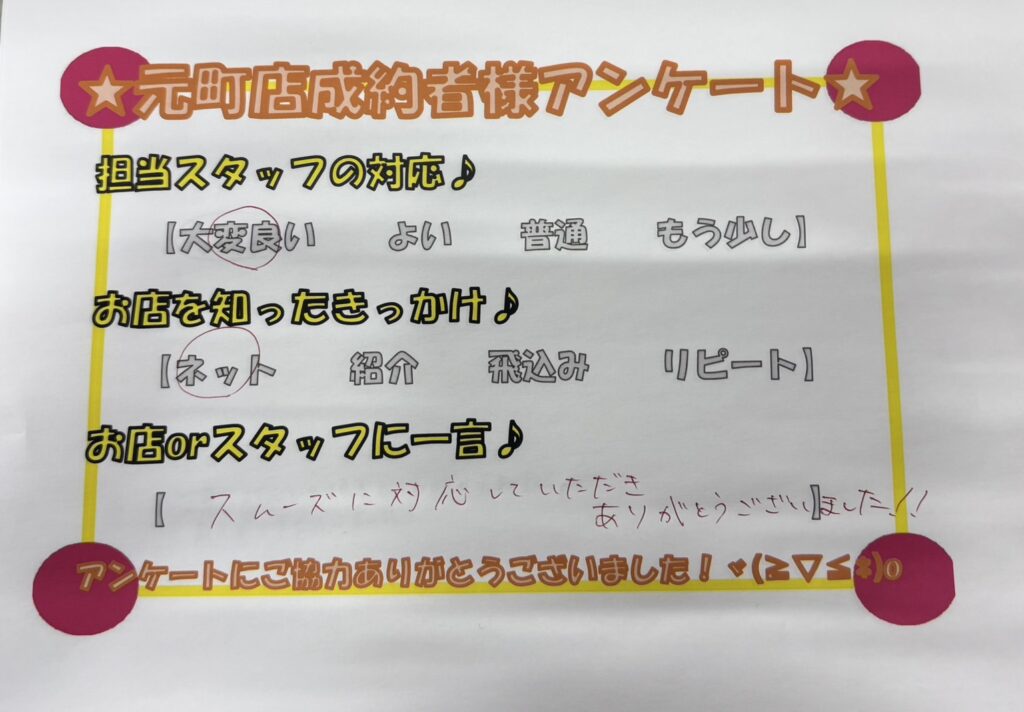 ★元町店成約者様アンケート★
担当スタッフの対応♪
【大変良い　よい　普通　もう少し】
お店を知ったきっかけ♪
【ネット　紹介　飛込み　リピート】
お店orスタッフに一言♪
【スムーズに対応していただき
ありがとうございました!!】
アンケートにご協力ありがとうございました！*(≧▽≦*)o